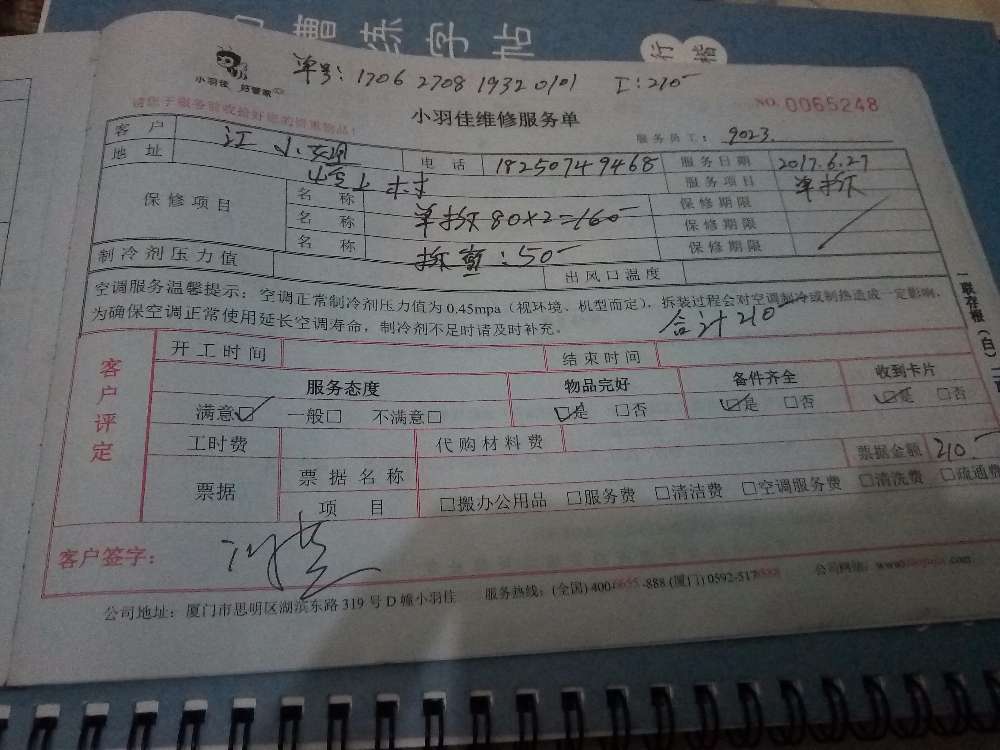 曹练字帖
行楷
小羽佳 好管家
单号：1706 2708 1932 0101 工:210-
NO. 0065248
请您于服务前收拾好您的贵重物品！
小羽佳维修服务单
服务员工： 9023.
客户 江小姐 电话 18250749468 服务日期 2017.6.27
地址 服务项目 单拆
保修项目 名称 保修期限
名称 单拆80×2=160- 保修期限
名称 保修期限
制冷剂压力值 :50- 出风口温度
空调服务温馨提示：空调正常制冷剂压力值为0.45mpa（视环境、机型而定），拆装过程会对空调制冷或制热造成一定影响，
为确保空调正常使用延长空调寿命，制冷剂不足时请及时补充。 合计210-
一联存根（白）
客户评定
开工时间 结束时间
服务态度 物品完好 备件齐全 收到卡片
满意☑ 一般□ 不满意□ ☑是 □否 ☑是 □否 ☑是 □否
工时费 代购材料费
票据 票据名称 票据金额 210-
项目 □搬办公用品 □服务费 □清洁费 □空调服务费 □清洗费 □疏通费
客户签字：
公司地址：厦门市思明区湖滨东路319号D幢小羽佳 服务热线：(全国) 400-6655-888 (厦门) 0592-517 公司网站：www. .com